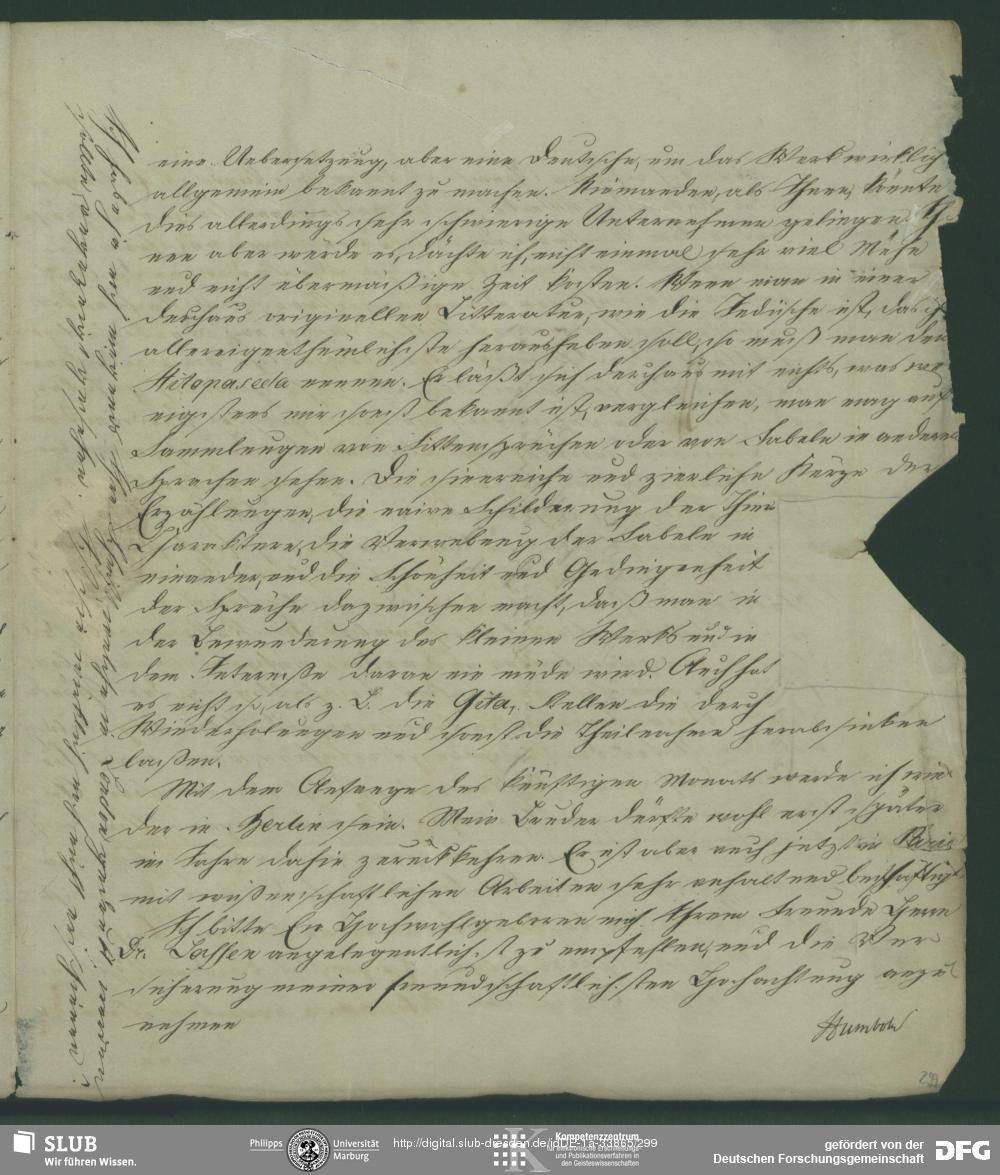 eine Uebersetzung, aber eine Deutsche, um das Werk wirklich
allgemein bekannt zu machen. Niemanden, als Ihnen, könnte
dies allerdings sehr schwierige Unternehmen gelingen. Ih-
nen aber würde es, dächte ich, nicht einmal sehr viel Mühe
und nicht übermäßige Zeit kosten. Wenn man in einer
durchaus originellen Litteratur, wie die Indische ist, das
allereigenthümlichste herausheben soll, so muß man den
Hitopaseda nennen. Er läßt sich durchaus mit nichts, was we-
nigstens mir sonst bekannt ist, vergleichen, man mag auf
Sammlungen von Sittensprüchen oder von Fabeln in anderen
Sprachen sehen. Die sinnreiche und zierliche Kürze der
Erzählungen, die naive Schilderung der Thier
Charaktere, die Verwebung der Fabeln in
einander, und die Schönheit und Gediegenheit
der Sprüche dazwischen macht, daß man in
der Bewunderung des kleinen Werks und in
dem Interesse daran nie müde wird. Auch hat
es nicht so, als z. B. die Gita, Stellen die durch
Wiederholungen und sonst die Theilnahme herabsinken
laßen.
Mit dem Anfange des künftigen Monats werde ich wie-
der in Berlin sein. Mein Bruder dürfte wohl erst später
im Jahre dahin zurückkehren. Er ist aber auch jetzt in Paris
mit wißenschaftlichen Arbeiten sehr anhaltend beschäftigt.
Ich bitte Ew Hochwohlgeboren mich Ihrem Freunde Herrn
Dr. Lassen angelegentlichst zu empfehlen, und die Ver-
sicherung meiner freundschaftlichsten Hochachtung anzu-
nehmen
Humboldt
299
Ich habe ja
London
SLUB
Wir führen Wissen.
Philipps Universität
Marburg
http://digital.slub-dresden.de/idDE-1a-33865/299
Kompetenzzentrum
für elektronische Erschließungs-
und Publikationsverfahren in
den Geisteswissenschaften
gefördert von der
Deutschen Forschungsgemeinschaft
DFG